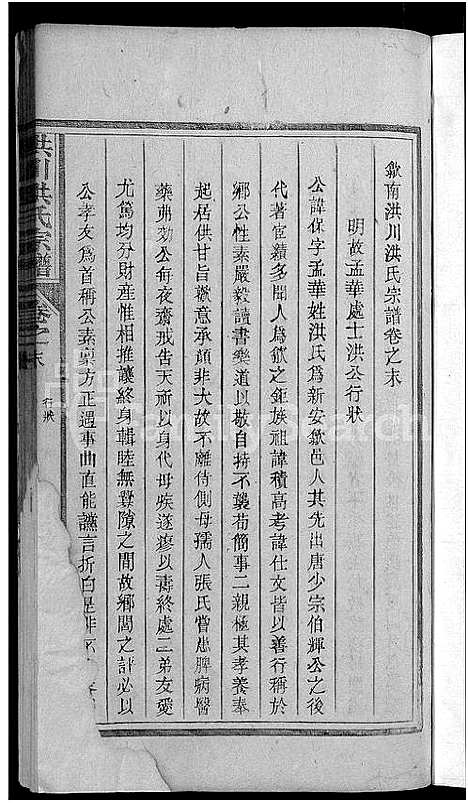 歙南洪川洪氏宗譜卷之末
明故孟華處士洪公行狀
公諱保字孟華姓洪氏爲新安歙邑人其先出唐少宗伯輝公之後
代著宦績多聞人爲歙之鉅族祖諱積高考諱仕文皆以善行稱於
鄉公性素嚴毅讀書樂道以敬自持不襲苟簡事二親極其孝養奉
起居供甘旨歡意承顏非大故不離侍側母孺人張氏嘗患脾病醫
藥弗効公每夜齋戒告天祈以身代母疾遂瘳以壽終處二弟友愛
尤爲均分財産惟相推讓終身輯睦無釁隙之間故鄉閭之評必以
公孝友爲首稱公素稟方正遇事曲直能讜言折白是非
洪川洪氏宗譜
卷之末
行狀